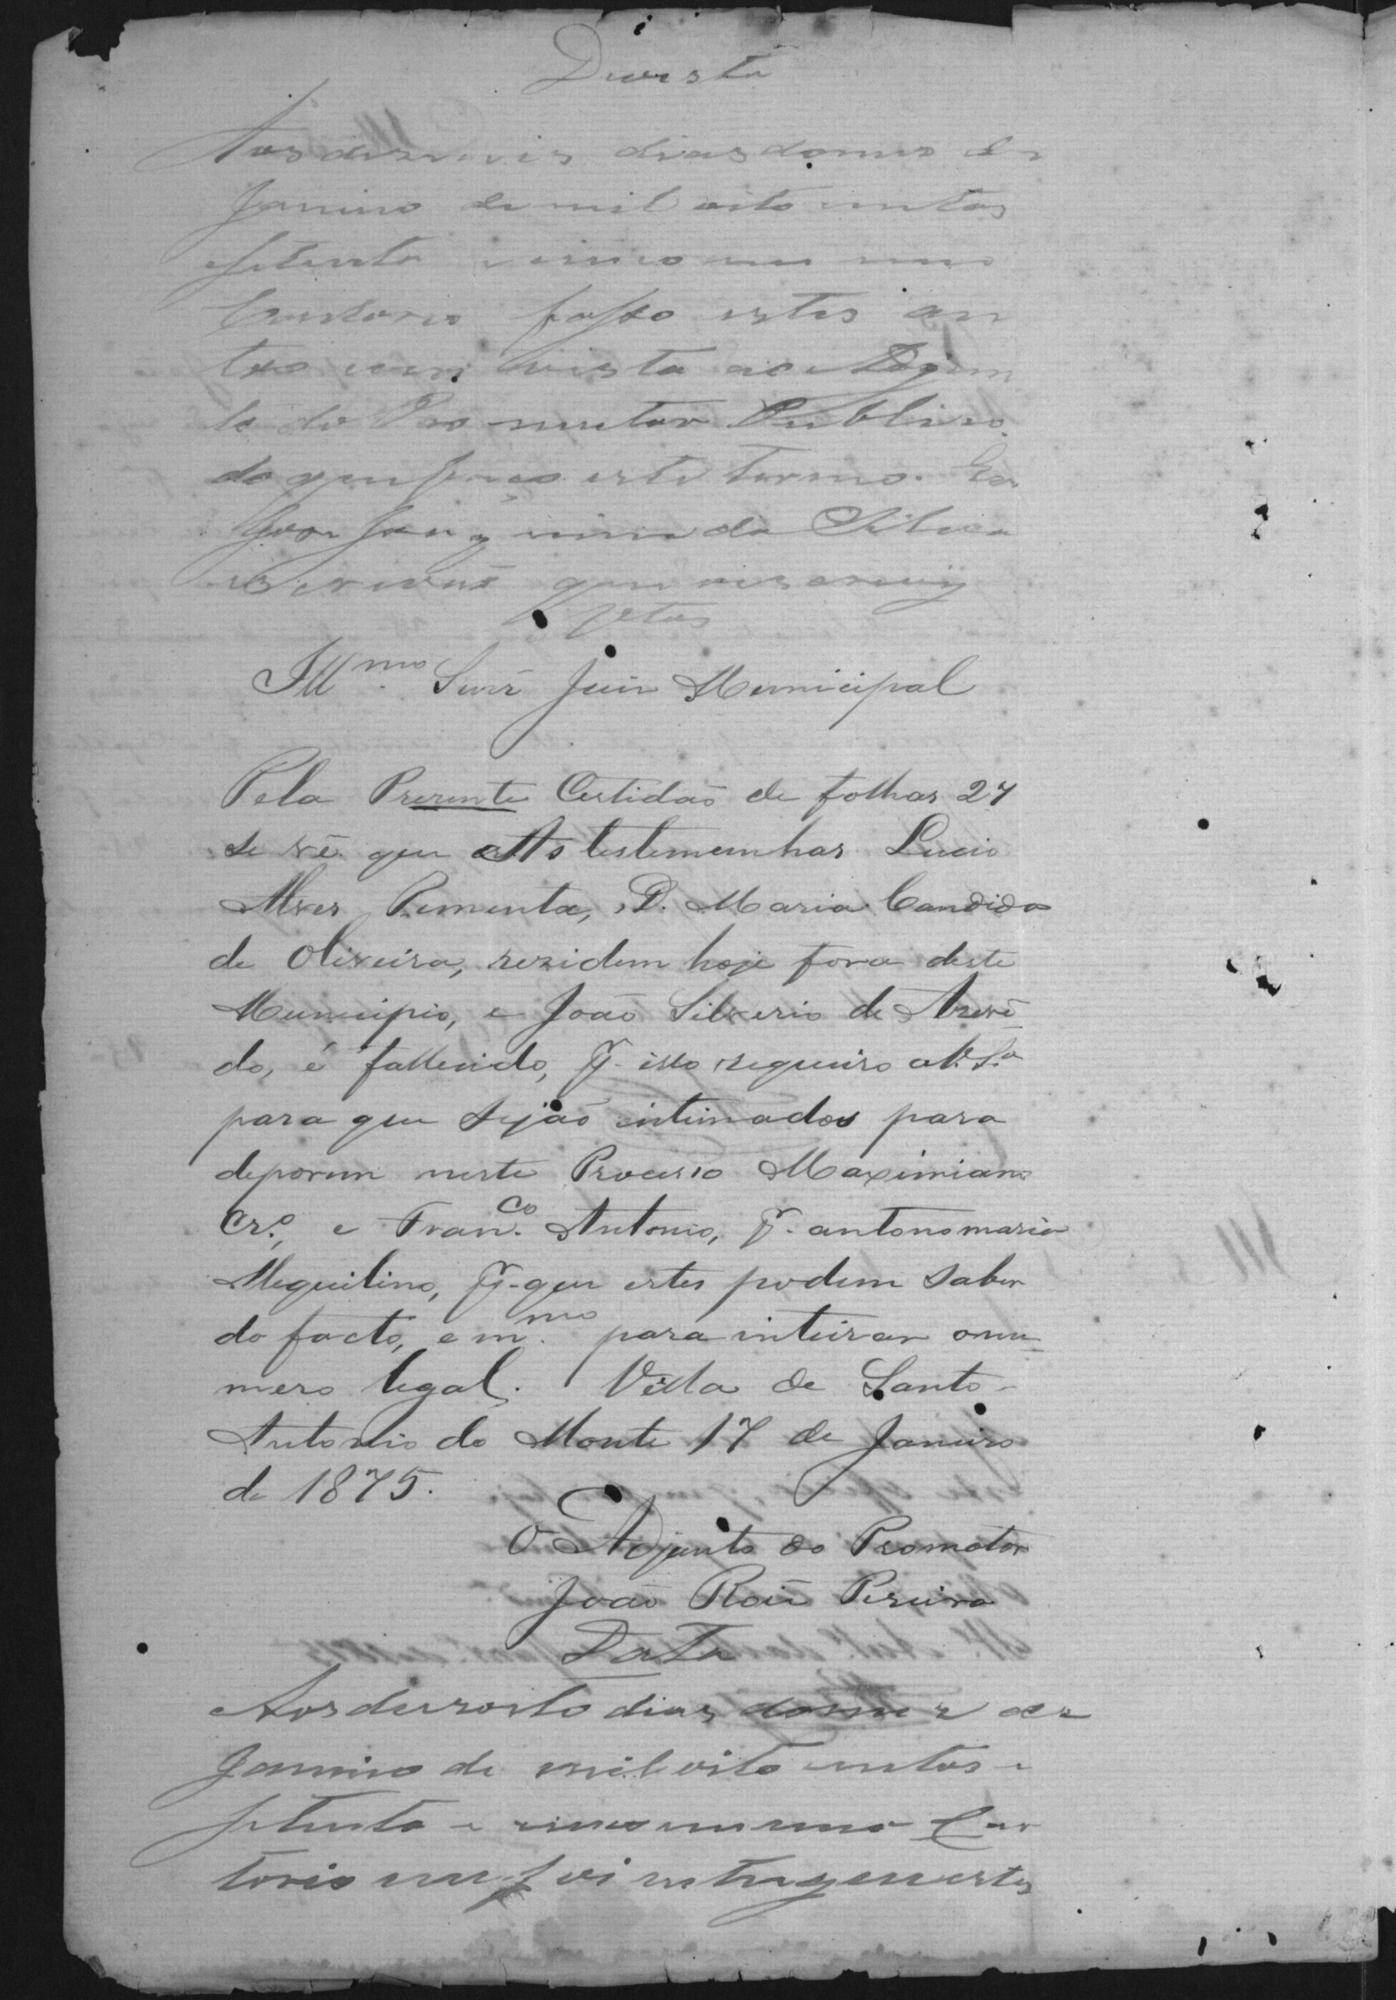 De vista
Aos deseseis dias do mes de
Janeiro de mil oito centos
setenta e cinco em meo
Cartorio fasso estes au
tos com vista ao Adjun
to do Promutor Publico
do que fasso este termo. Eu
Joaquim da Silva
Escrivão que escrevy
Vistos
Illmo. Senr Juiz Municipal
Pela Prezente Certidão de folhas 27
se vê que As testemunhas Lucio
Alves Pimenta, D. Maria Candida
de Oliveira, rezidem hoje fora deste
Municipio, e João Silverio de Azevê
do, é fallecido, Pr. isso requeiro a V.Sa
para que sejão intimados para
deporem neste Procesço Maximiano
Cr.o, e Franco. Antonio, Pr. antonomazia
Mequilino, Pr. que estes podem saber
do facto, e mmo. para inteirar o nu
mero legal. Villa de Santo
Antonio do Monte 17 de Janeiro
de 1875.
O Adjunto do Promotor
João Roiz Pereira
Data
Aos desoito dias do mes de
Janeiro de mil oito centos e
setenta e cinco em meo Car
torio me foi entregue estes